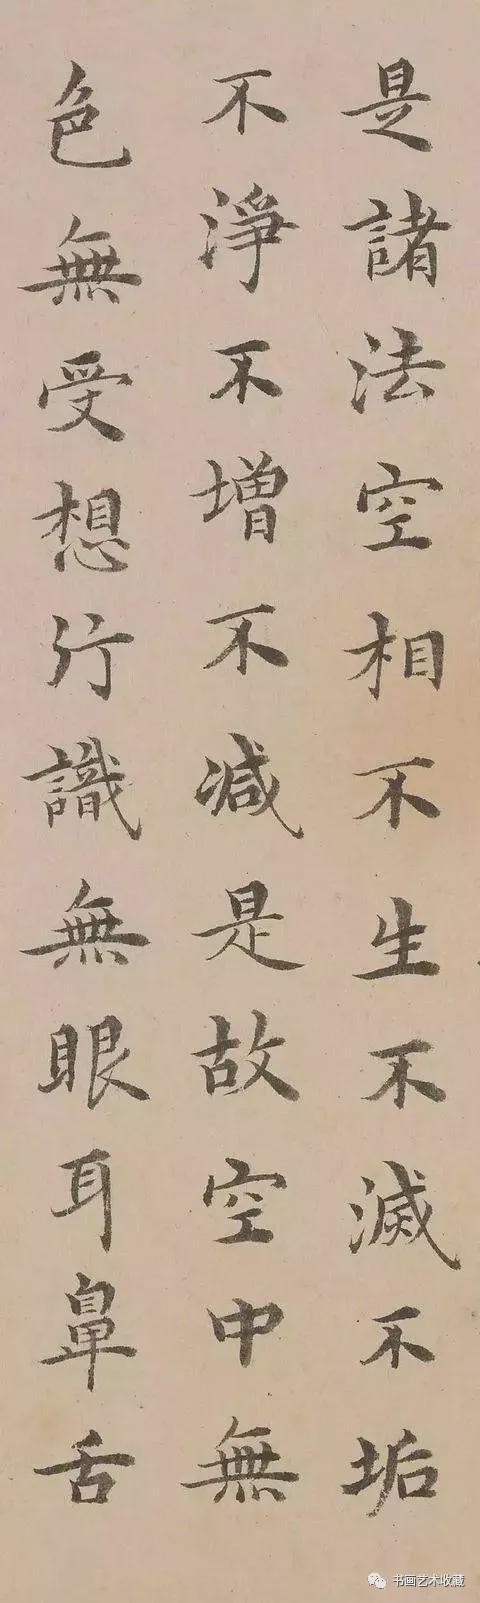 是諸法空相不生不滅不垢
不淨不增不減是故空中無
色無受想行識無眼耳鼻舌
书画艺术收藏